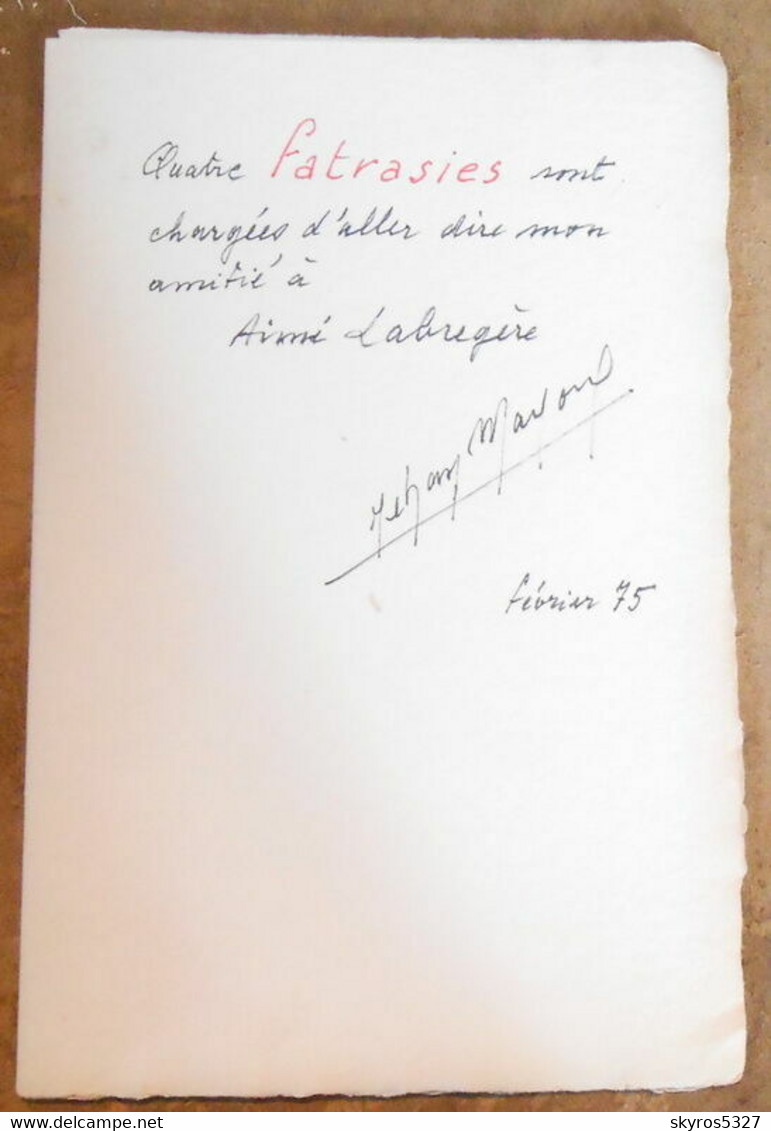 Quatre fatrasies sont
chargées d'aller dire mon
amitié à
Aimé Labregère
Jehan Mayoux
février 75
delcampe.net
skyros5327